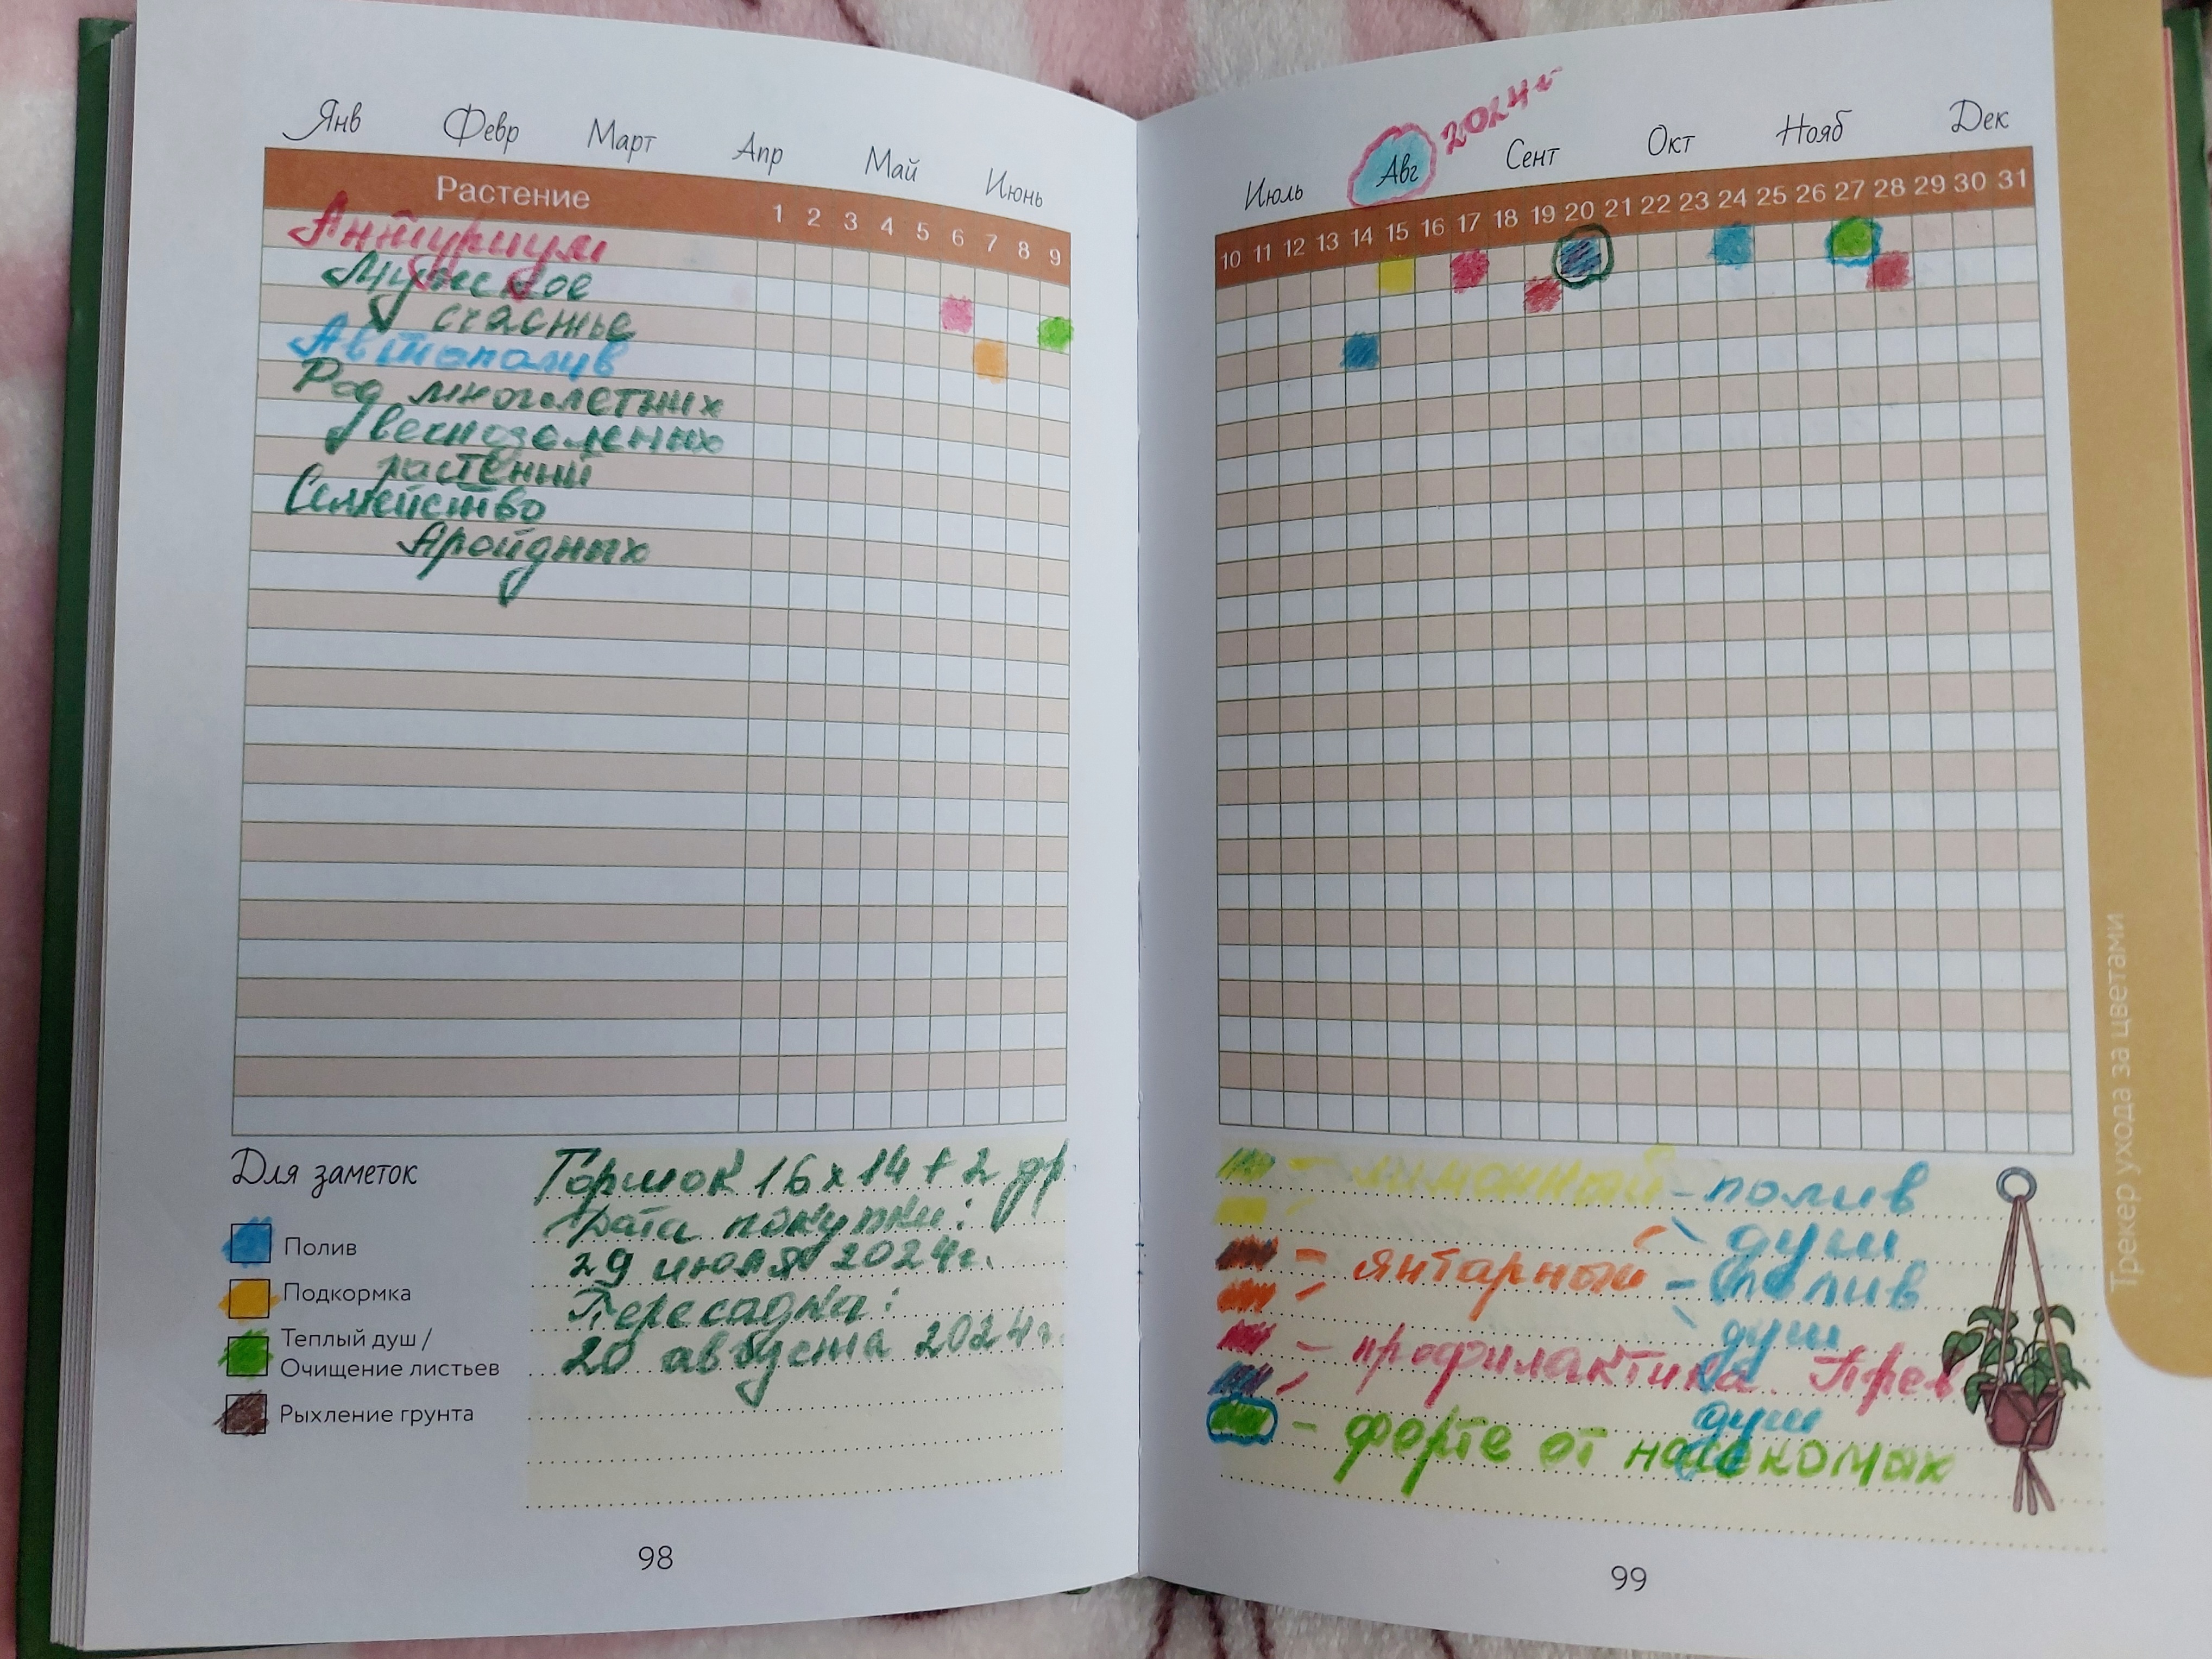 Янв Февр Март Апр Май Июнь
Растение 1 2 3 4 5 6 7 8 9
Антуриум
Мужское
счастье
Автополив
Род многолетних
вечнозеленых
растений
Семейство
Ароидных
Для заметок
Полив
Подкормка
Теплый душ /
Очищение листьев
Рыхление грунта
Горшок 16х14 + 2 др.
Дата покупки:
29 июля 2024г.
Пересадка:
20 августа 2024г.
98
Июль Авг 2024г Сент Окт Нояб Дек
10 11 12 13 14 15 16 17 18 19 20 21 22 23 24 25 26 27 28 29 30 31
- лимонный - полив
душ
- янтарный - полив
душ
- профилактика.
душ
- форте от насекомых
99
Трекер ухода за цветами